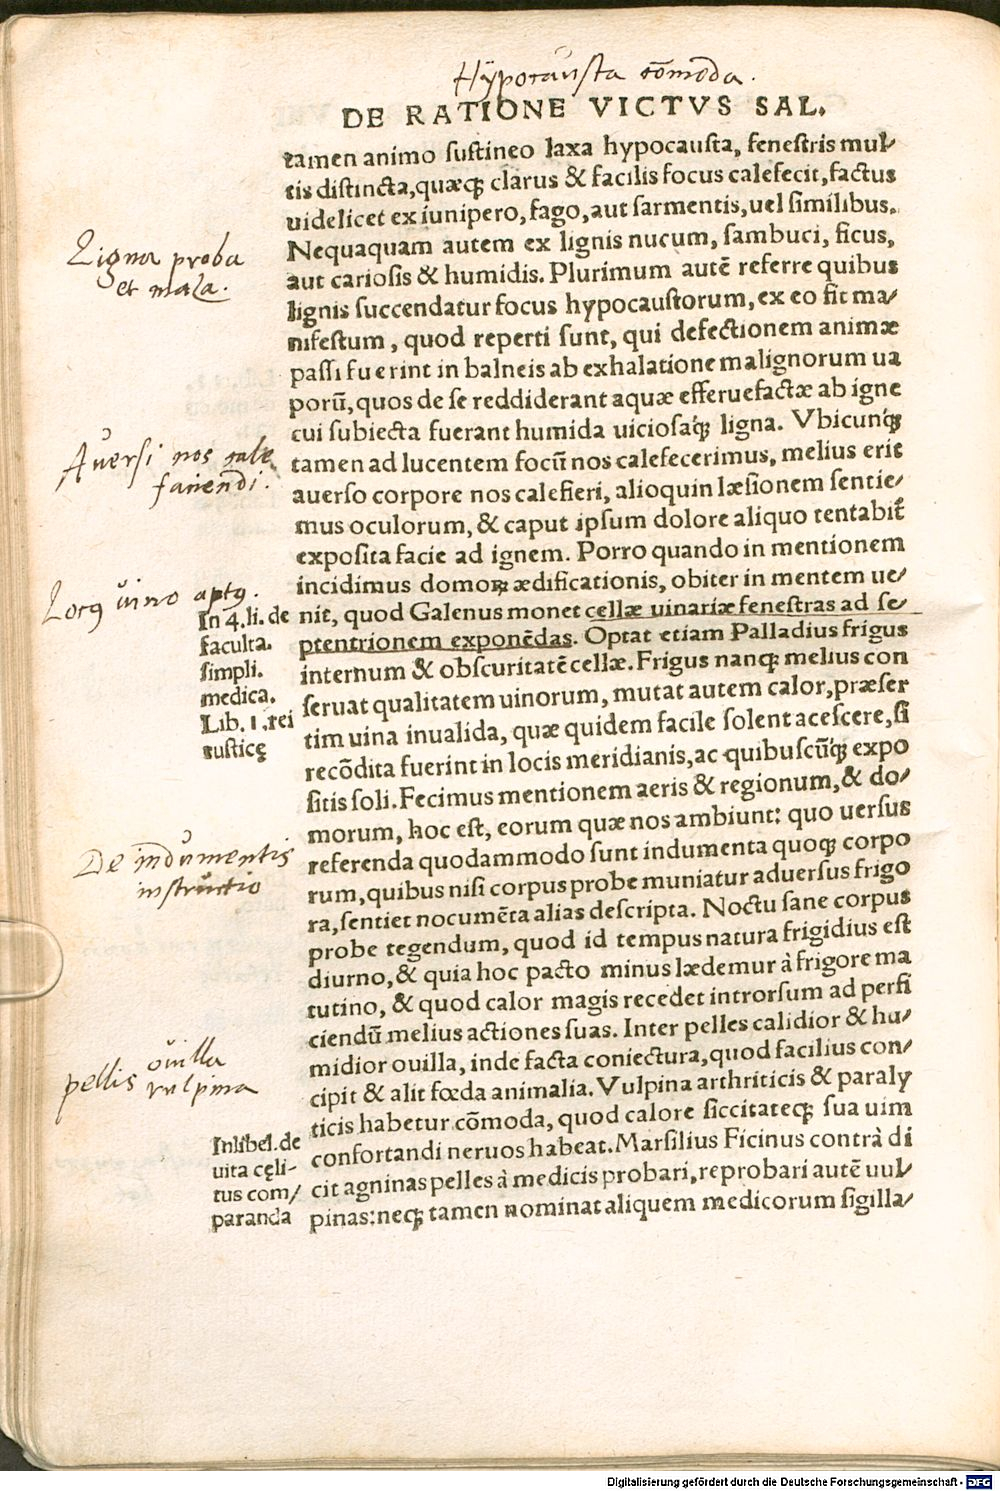 Hypocausta cõmoda.
DE RATIONE VICTVS SAL.
tamen animo sustineo laxa hypocausta, fenestris mul⸗
tis distincta, quæcꝫ clarus & facilis focus calefecit, factus
uidelicet ex iunipero, fago, aut sarmentis, uel similibus.
Nequaquam autem ex lignis nucum, sambuci, ficus,
aut cariosis & humidis. Plurimum autẽ referre quibus
lignis succendatur focus hypocaustorum, ex eo fit ma⸗
nifestum, quod reperti sunt, qui defectionem animæ
passi fuerint in balneis ab exhalatione malignorum ua
porũ, quos de se reddiderant aquæ efferuefactæ ab igne
cui subiecta fuerant humida uiciosaꝗ́ꝫ ligna. Vbicunꝗ́ꝫ
tamen ad lucentem focũ nos calefecerimus, melius erit
auerso corpore nos calefieri, alioquin læsionem sentie⸗
mus oculorum, & caput ipsum dolore aliquo tentabit̃
exposita facie ad ignem. Porro quando in mentionem
incidimus domoꝝ ædificationis, obiter in mentem ue⸗
nit, quod Galenus monet cellæ uinariæ fenestras ad se⸗
ptentrionem exponẽdas. Optat etiam Palladius frigus
internum & obscuritatẽ cellæ. Frigus nanqꝫ melius con
seruat qualitatem uinorum, mutat autem calor, præser
tim uina inualida, quæ quidem facile solent acescere, si
recõdita fuerint in locis meridianis, ac quibuscũꝗ́ꝫ expo
sitis soli. Fecimus mentionem aeris & regionum, & do⸗
morum, hoc est, eorum quæ nos ambiunt: quo uersus
referenda quodammodo sunt indumenta quoqꝫ corpo
rum, quibus nisi corpus probe muniatur aduersus frigo
ra, sentiet nocumẽta alias descripta. Noctu sane corpus
probe tegendum, quod id tempus natura frigidius est
diurno, & quia hoc pacto minus lædemur à frigore ma
tutino, & quod calor magis recedet introrsum ad perfi
ciendũ melius actiones suas. Inter pelles calidior & hu⸗
midior ouilla, inde facta coniectura, quod facilius con⸗
cipit & alit fœda animalia. Vulpina arthriticis & paraly
ticis habetur cõmoda, quod calore siccitateqꝫ sua uim
confortandi neruos habeat. Marsilius Ficinus contrà di
cit agninas pelles à medicis probari, reprobari autẽ uul⸗
pinas: neqꝫ tamen nominat aliquem medicorum sigilla⸗
Ligna proba
et mala.
Aversi nos cale
faciendi.
Locꝰ vino aptꝰ.
In 4. li. de
faculta.
simpli.
medica.
Lib. 1. rei
rusticę
De indumentis
instructio
pellis ovilla
vulpina
In libel. de
uita cęli-
tus com⸗
paranda
Digitalisierung gefördert durch die Deutsche Forschungsgemeinschaft - DFG